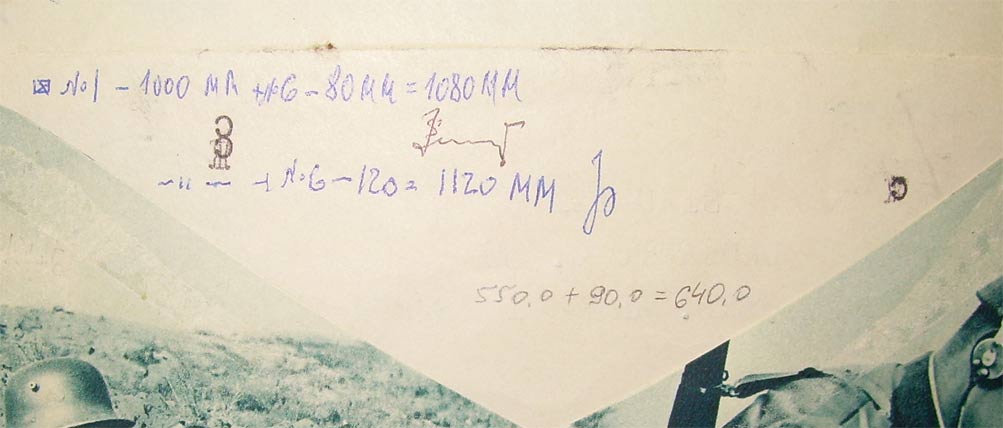 №1 – 1000 мм + №6 – 80 мм = 1080 мм
–"– + №6 – 120 = 1120 мм
550,0 + 90,0 = 640,0